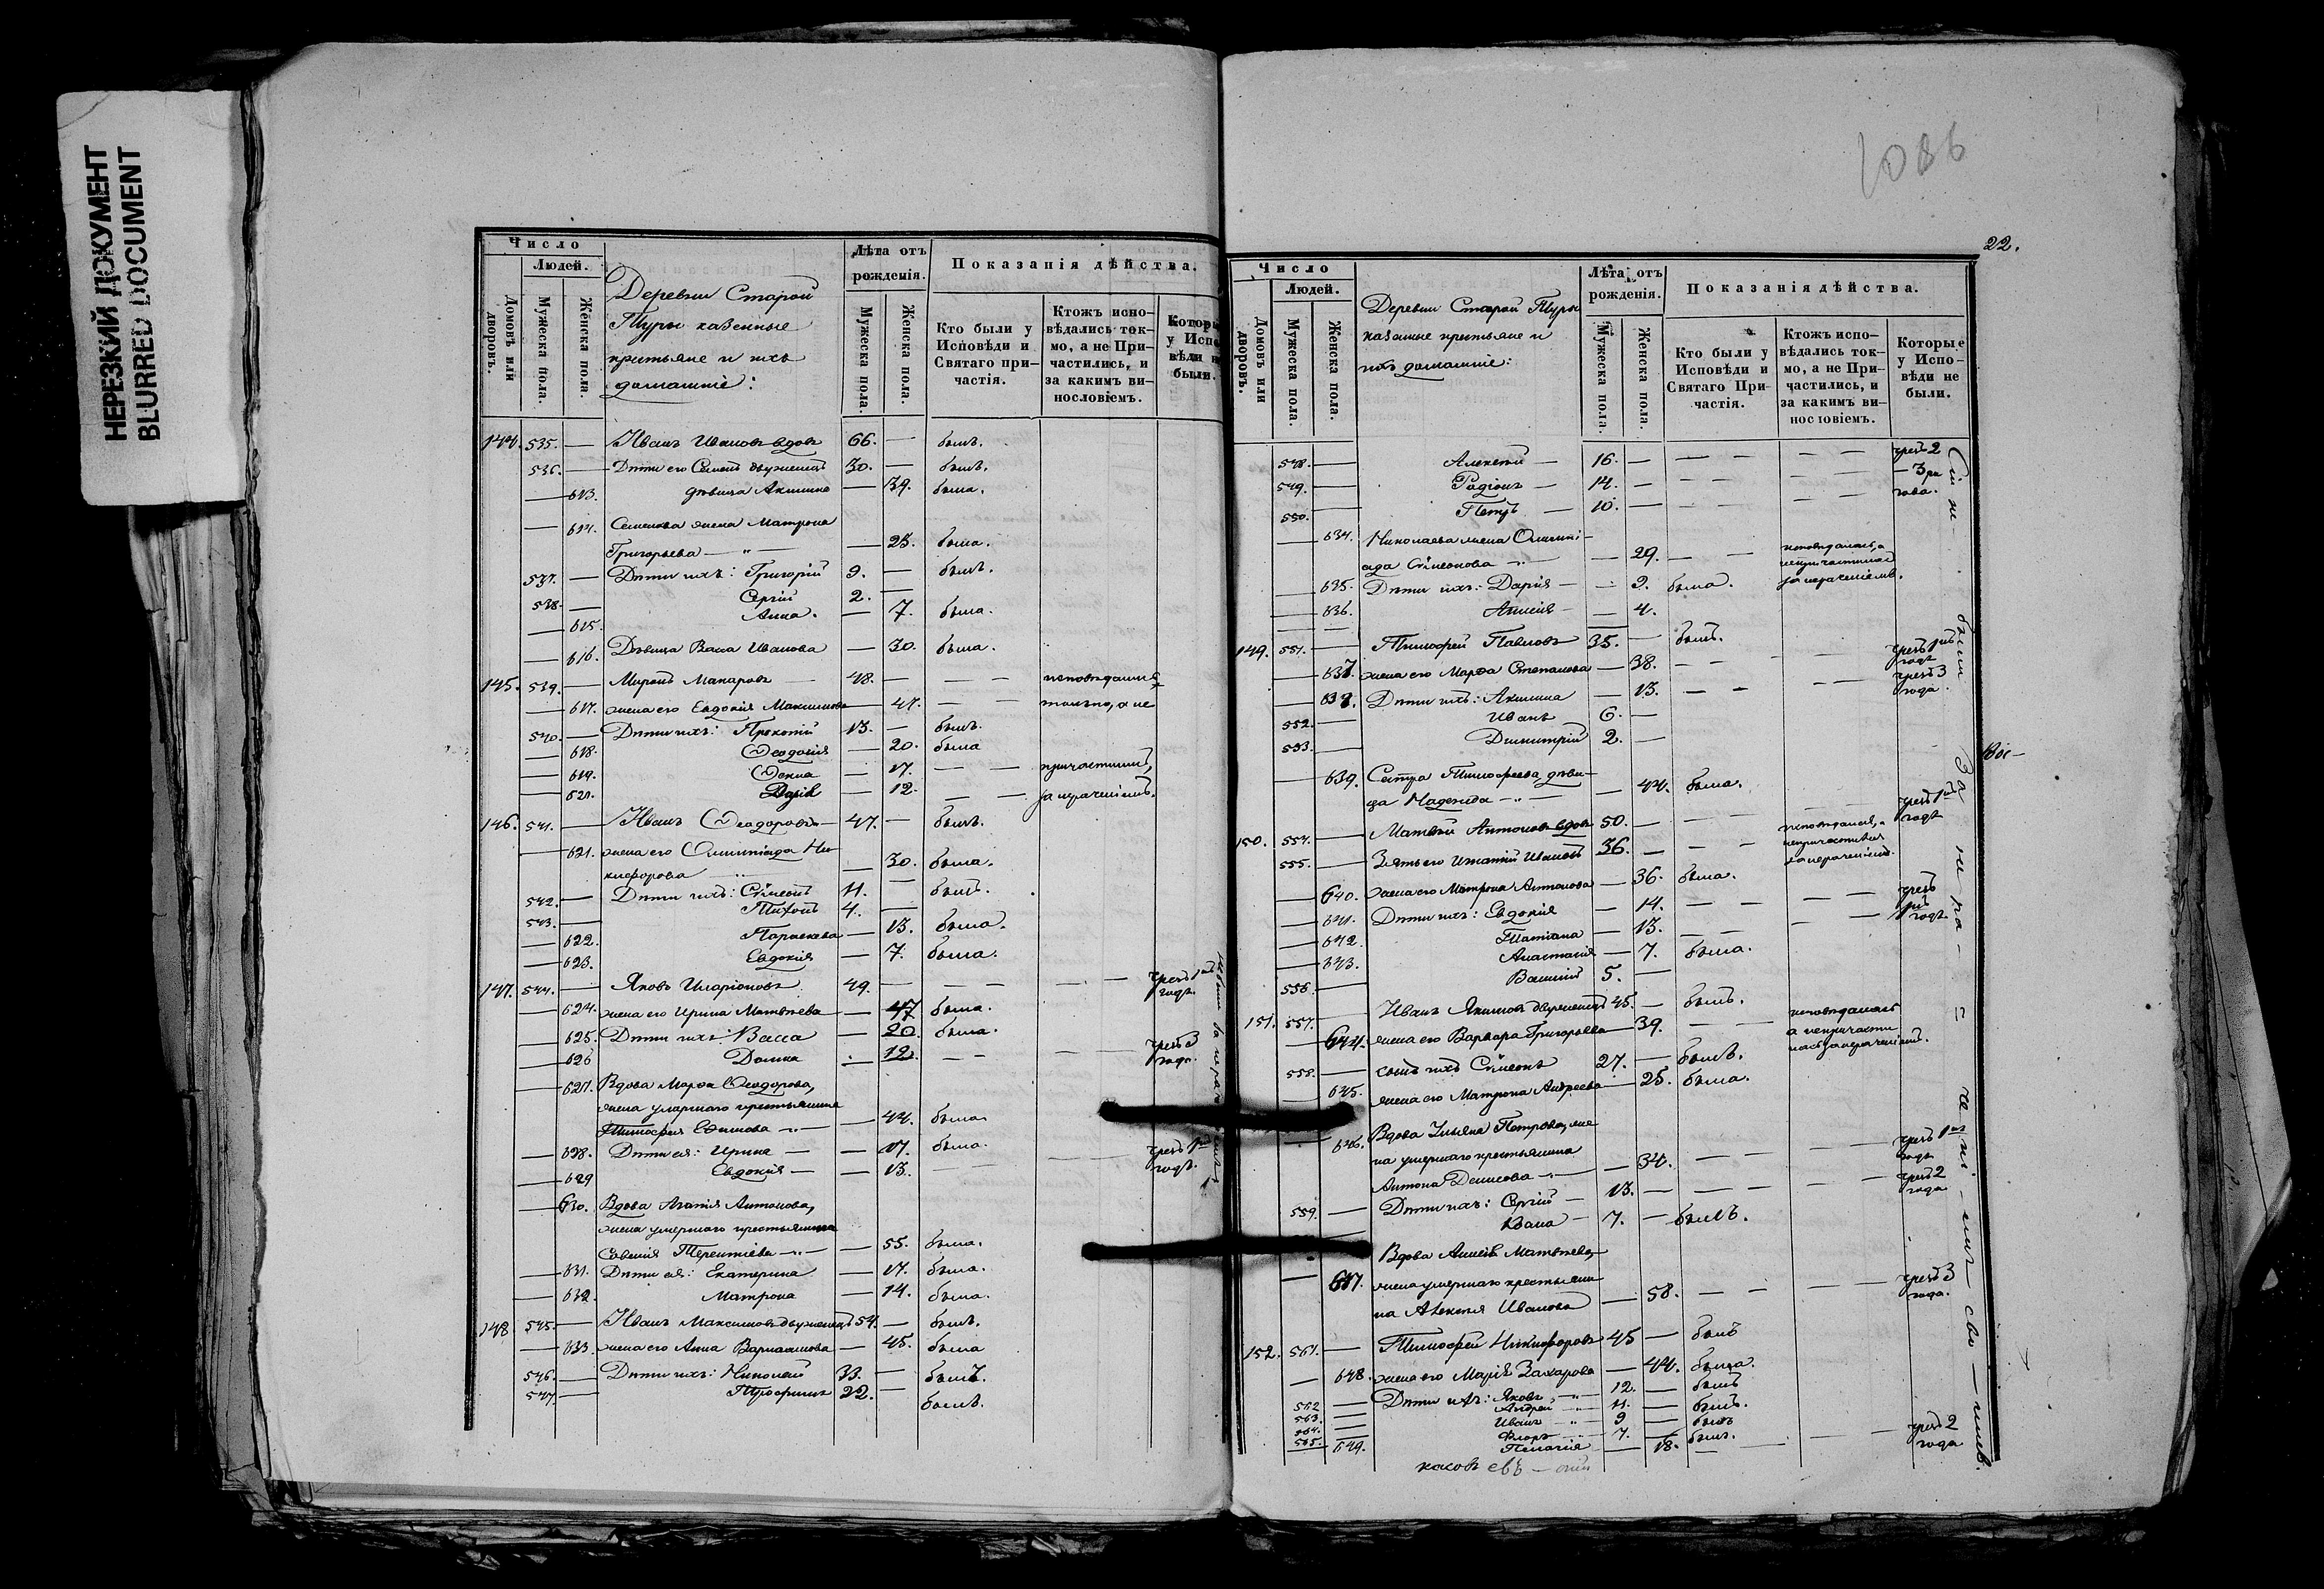 НЕРЕЗКИЙ ДОКУМЕНТ
BLURRED DOCUMENT
Число
Людей.
Домовъ или дворовъ.
Мужеска пола.
Женска пола.
Деревни Старой
Туры казенные
крестьяне и ихъ
домашніе:
Лѣта отъ
рожденія.
Мужеска пола.
Женска пола.
Показанія дѣйства.
Кто были у
Исповѣди и
Святаго при-
частія.
Ктожъ испо-
вѣдались ток-
мо, а не При-
частились, и
за какимъ ви-
нословіемъ.
Которые
у Испо-
вѣди не
были.
144. 535. — Иванъ Ивановъ вдовъ 66. — былъ.
536. — Дѣти его Семенъ двуженецъ 30. — былъ.
— 613. дѣвица Акилина — 39. была.
— 614. Семенова жена Матрона
Григорьева — „ — — 25. была.
537. — Дѣти ихъ: Григорій 9. — былъ.
538. — Сергій 2. —
— 615. Анна. — 7. была.
— 616. Дѣвица Васса Иванова — 30. была.
145. 539. — Миронъ Макаровъ — 48. — — — исповѣдались
— 617. жена его Евдокія Максимова — 47. — — только, а не
540. — Дѣти ихъ: Прокопій 13. — былъ.
— 618. Ѳеодосія — 20. была
— 619. Ѳекла — 17. — — причастились,
— 620. Дарія — 12. — — за нераченіемъ.
146. 541. — Иванъ Ѳеодоровъ — 47. — былъ.
— 621. жена его Олимпіада Ни-
кифорова — 30. была.
542. — Дѣти ихъ: Сѵмеонъ 11. — былъ.
543. — Тихонъ 4. —
— 622. Параскева — 13. была.
— 623. Евдокія — 7. была.
147. 544. — Яковъ Иларіоновъ 49. — — — — — чрезъ 1нъ
годъ.
— 624. жена его Ирина Матвѣева — 47 была.
— 625. Дѣти ихъ: Васса — 20 была.
— 626 Домна — 12. — — — чрезъ 3
года.
— 627. Вдова Марѳа Ѳеодорова,
жена умершаго крестьянина
Тимоѳея Ефимова — „ — — 44. была.
— 628. Дѣти ея: Ирина — — 17. была.
— 629 Евдокія — — 13. — — — — чрезъ 1нъ
годъ.
— 630. Вдова Агапія Антонова,
жена умершаго крестьянина
Савелія Терентіева — „ — — 55. была.
— 631. Дѣти ея: Екатерина — 17. была.
— 632. Матрона — 14. была.
148 545. — Иванъ Максимовъ двуженецъ 54. — былъ.
— 633. жена его Анна Варлаамова — 45. была
546. — Дѣти ихъ: Николай 33. — былъ.
547. — Трофимъ 22. — былъ.
1086
22.
Число
Людей.
Домовъ или дворовъ.
Мужеска пола.
Женска пола.
Деревни Старой Туры
казенные крестьяне и
ихъ домашніе:
Лѣта отъ
рожденія.
Мужеска пола.
Женска пола.
Показанія дѣйства.
Кто были у
Исповѣди и
Святаго При-
частія.
Ктожъ испо-
вѣдались ток-
мо, а не При-
частились, и
за какимъ ви-
нословіемъ.
Которые
у Испо-
вѣди не
были.
548. — Алексѣй — 16. — — — — — чрезъ 2
549. — Радіонъ — 14. — — — — — 3 ри
550. — Петръ — 10. — — — — — года.
— 634. Николаева жена Олимпі-
ада Сѵмеонова — „ — 29. — — исповѣдалась, а
непричастилась
— 635. Дѣти ихъ: Дарія — — 9. была. за нераченіемъ.
— 636. Анисія — — 4.
149. 551. — Тимоѳей Павловъ 35. — былъ.
— 637. жена его Марѳа Степанова — 38. — — — — чрезъ 1нъ
годъ
— 638. Дѣти ихъ: Акилина — 13. — — чрезъ 3
года.
552. — Иванъ 6. —
553. — Димитрій 2. —
— 639. Сестра Тимоѳеева, дѣви-
ца Надежда — „ — — 44. была.
150. 554. — Матвѣй Антоновъ вдовъ 50. — — — — чрезъ 1нъ
годъ
555. — Зять его Игнатій Ивановъ 36. — — — исповѣдался, а
непричастился
за нераченіемъ.
— 640. жена его Матрона Антонова — 36. была.
— 641. Дѣти ихъ: Евдокія — 14. — — — — чрезъ
— 642. Татіана — 13. — — — — 1нъ годъ
— 643. Анастасія — 7. была.
556. — Василій 5. —
151. 557. — Иванъ Якимовъ двуженецъ 45. — былъ.
— 644. жена его Варвара Григорьева — 39. — — исповѣдалась
а непричасти
лась за нераченіемъ.
558. — сынъ ихъ Сѵмеонъ 27. — былъ.
— 645. жена его Матрона Андреева — 25. была.
— 646. Вдова Ульяна Петрова, же
на умершаго крестьянина
Антона Денисова — „ — — 34. — — — — чрезъ 1нъ
годъ
559. — Дѣти ихъ: Сергій — 13. — — — — — чрезъ 2
года
— 7. — былъ.
Вдова Анисія Матвѣева,
— 647. жена умершаго крестьяни
на Алексѣя Иванова — 58. — — — — чрезъ 3
года.
152. 561. — Тимоѳей Никифоровъ 45 — былъ
— 648. жена его Марія Захарова — 44. была.
562 — Дѣти ихъ: Яковъ — „ — 12. — былъ
563. — Андрей — 11. — былъ.
564. — Иванъ — „ — 9 — былъ
565. — Флоръ — „ — 7. — былъ.
— 649. Пелагія — 18. — — — чрезъ 2
года
Сіи не были за нераченіемъ